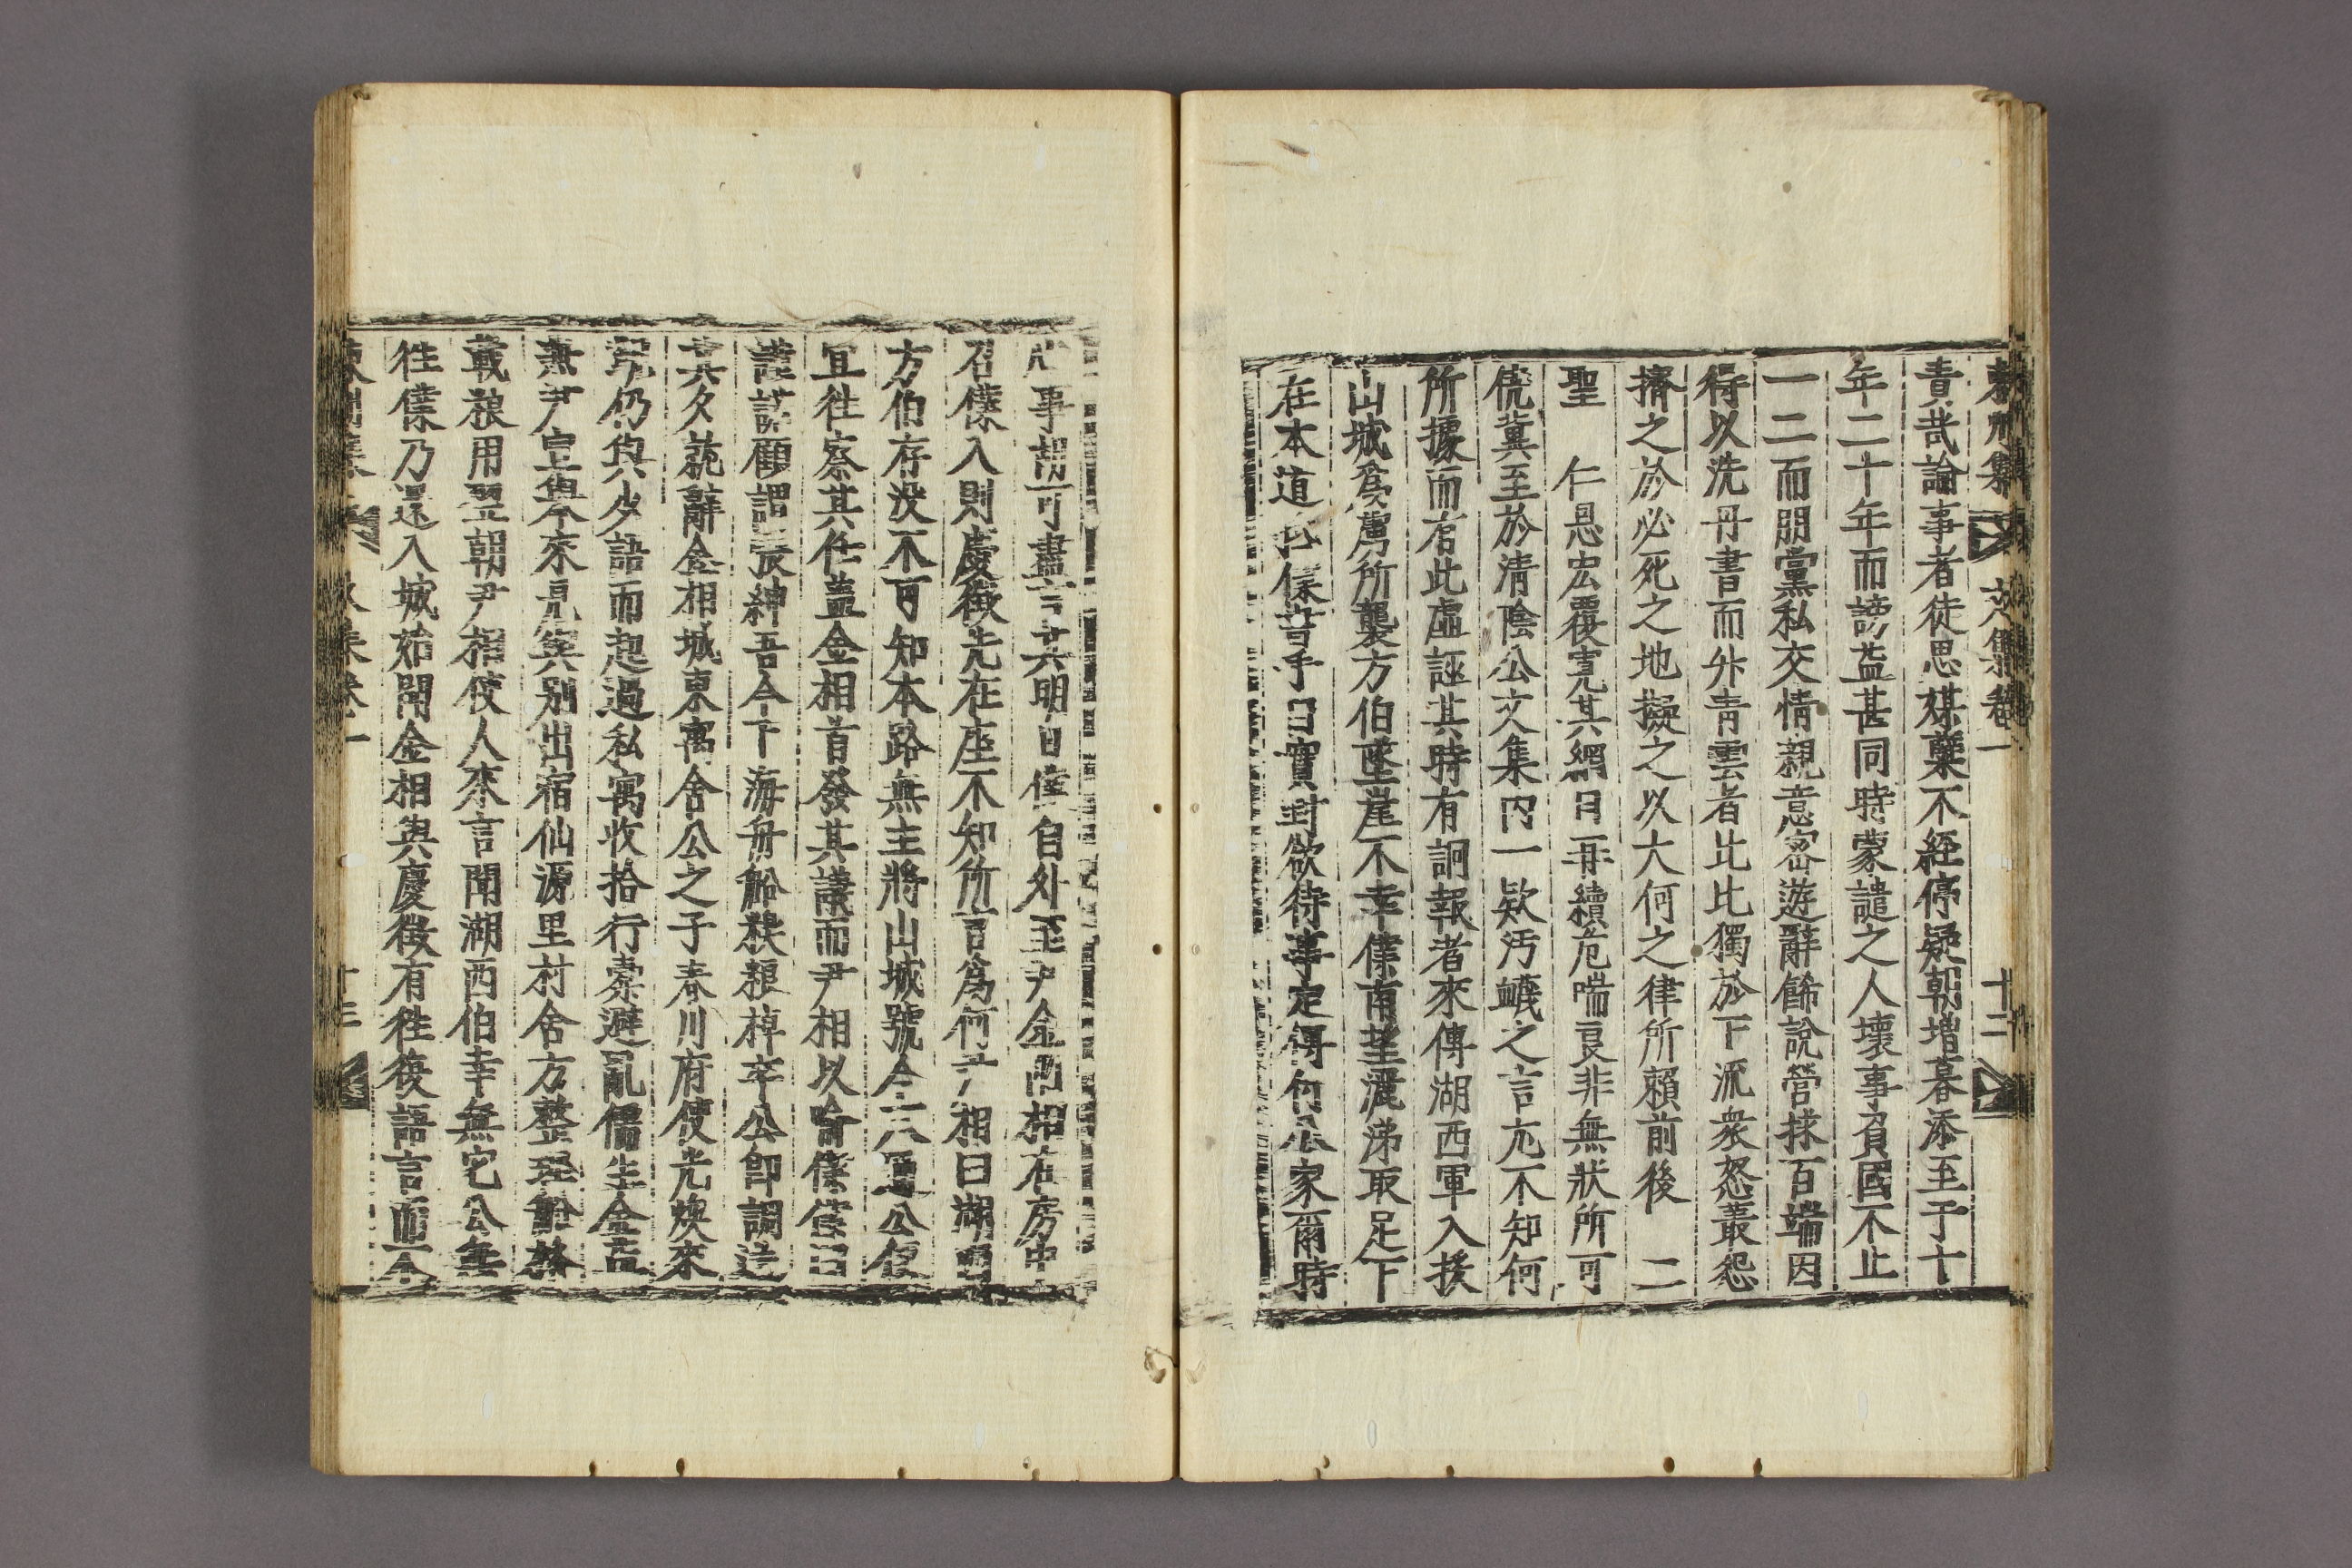 集 文集卷一 十二
責哉論事者徒思媒蘖不經停疑朝增暮添至于十
年二十年而謗益甚同時蒙譴之人壞事負國不止
一二而朋黨私交情親意密遊辭餙說營捄百端因
得以洗丹書而升靑雲者比比獨於下流衆怒叢怨
擠之於必死之地擬之以大何之律所賴前後 二
聖 仁恩宏覆寬其網目再續危喘良非無狀所可
僥冀至於清陰公文集內一款汚衊之言尤不知何
所據而有此虛誣其時有詗報者來傳湖西軍入援
山城爲虜所襲方伯墜崖不幸僕南望灑涕取足下
在本道 僕書手曰實封欲待事定得付公家爾時
心事胡可盡言其明日僕自外至尹金兩相在房中
召僕入則慶徵先在座不知所言爲何尹相曰湖西
方伯存没不可知本路無主將山城號令六道公便
宜徃察其任盖金相首發其議而尹相以喩僕僕曰
謹諾顧謂張紳吾今下海舟船粮棹卒公卽調送
其夕就辭金相城東寓舍公之子春川府使光煥來
見仍與少語而起過私寓收拾行橐避亂儒生金
無尹 來見與別出宿仙源里村舍方整理船
載粮用翌朝尹相使人來言聞湖西伯幸無它公無
徃僕乃還入城始聞金相與慶徵有徃復語言而今
集 文集卷一 十三